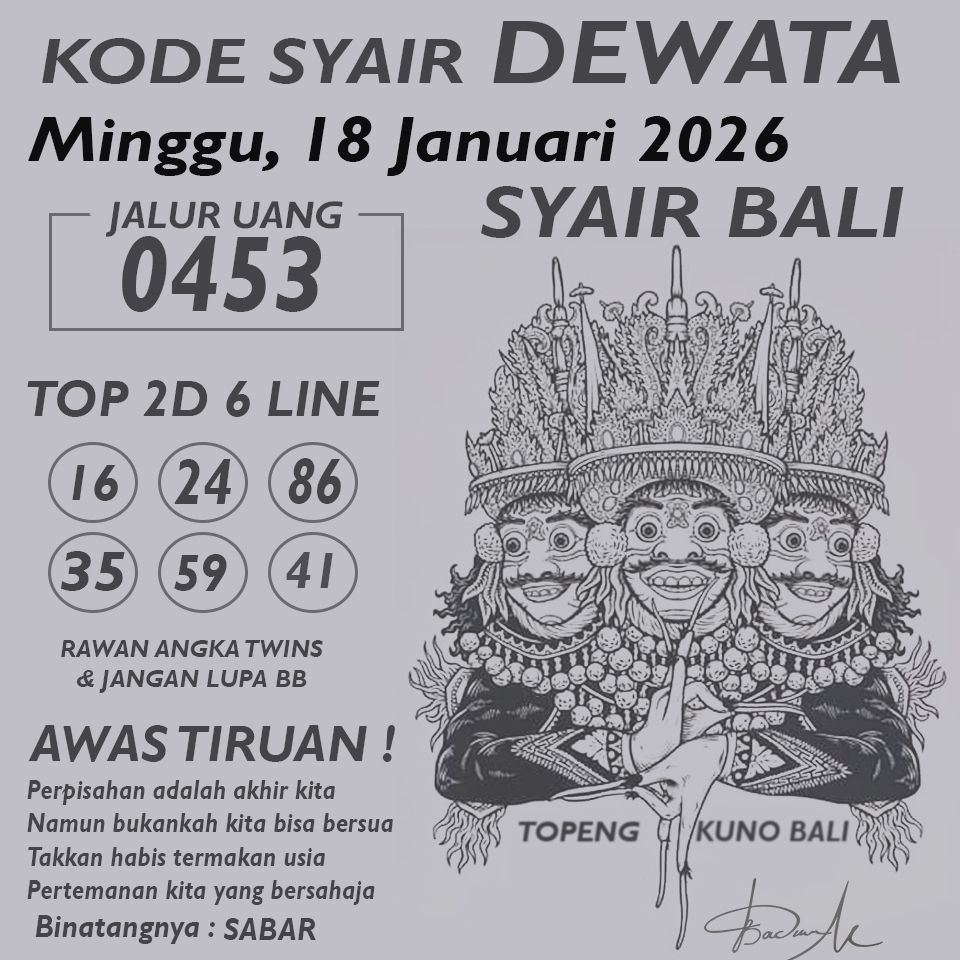 KODE SYAIR DEWATA
Minggu, 18 Januari 2026
SYAIR BALI
JALUR UANG
0453
TOP 2D 6 LINE
16 24 86
35 59 41
RAWAN ANGKA TWINS
& JANGAN LUPA BB
AWAS TIRUAN !
Perpisahan adalah akhir kita
Namun bukankah kita bisa bersua
Takkan habis termakan usia
Pertemanan kita yang bersahaja
Binatangnya : SABAR
TOPENG KUNO BALI